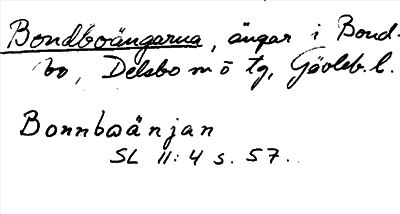 Bondboängarna, ängar i Bond-
bo, Delsbo m ö tg, Gävleb. l.
Bonnbωänjan
SL 11:4 s. 57.